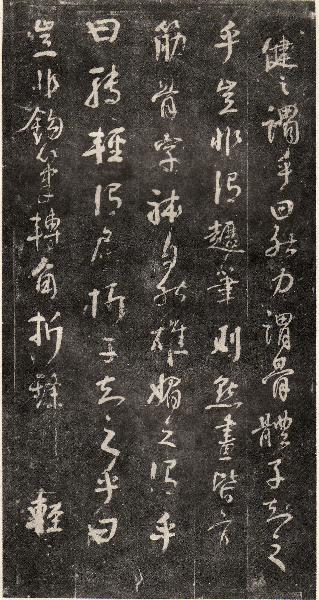 健之謂乎曰然力謂骨體子知之
乎豈非謂趯筆則點畫皆有
筋骨字躰自然雄媚之謂乎
曰轉輕謂屈折子知之乎曰
豈非鉤筆轉角折鋒輕